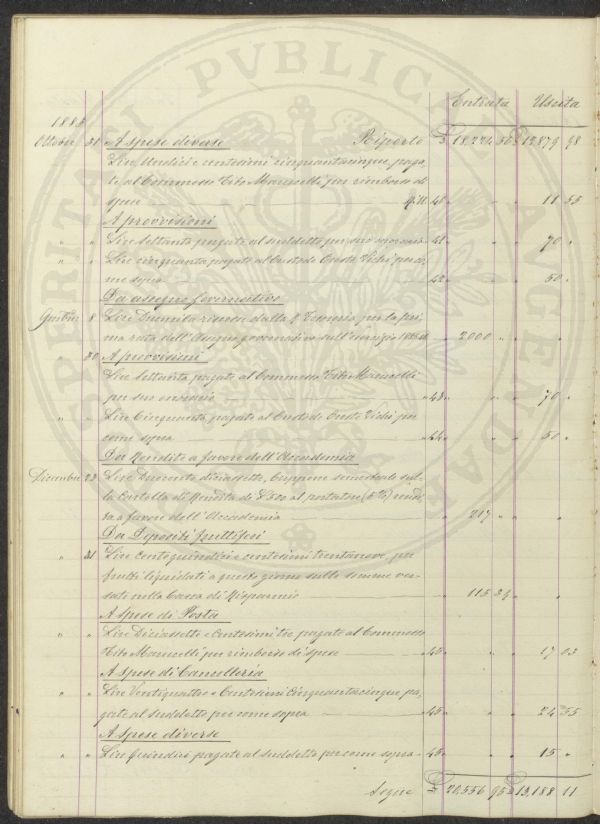 Entrata Uscita
1885
Ottobre 31 A spese diverse Riporto £ 18,224 56 £ 12,879 98
Lire Undici e centesimi cinquantacinque paga-
te al Commesso Tito Marucelli per rimborso di
spese 11 55
A provvisioni
" " Lire Settanta pagate al suddetto per suo onorario 41 70 "
" " Lire cinquanta pagate al Custode Oreste Vichi per co-
me sopra 42 50 "
Da assegno governativo
8 Lire Duemila riscosse dalla R. Tesoreria per la pri-
ma rata dell'Assegno governativo sull'esercizio 2000
30 A provvisioni
Lire Settanta pagate al Commesso Tito Marucelli
per suo onorario 43 70 "
" " Lire Cinquanta pagate al Custode Oreste Vichi per
come sopra 44 50 "
Da Rendite a favore dell'Accademia
Dicembre 23 Lire Duecento diciassette, Cuppone semestrale sul-
la Cartella di Rendita di £ 500 al portatore (5%)
a favore dell'Accademia 217 "
Da Depositi fruttiferi
" 31 Lire Centoquindici e centesimi trentanove, per
frutti liquidati a questo giorno sulle somme ver-
sate nella Cassa di Risparmio 115 39
A spese di Posta
" " Lire Diciassette e Centesimi tre pagate al Commesso
Tito Marucelli per rimborso di spese 45 17 03
A spese di Cancelleria
" " Lire Ventiquattro e Centesimi Cinquantacinque pa-
gate al suddetto per come sopra 45 24 55
A spese diverse
" " Lire Quindici pagate al suddetto per come sopra 45 15 "
Segue £ 20,556 95 £ 13,188 11
SPIRITALI PVBLICE AVGENDAE